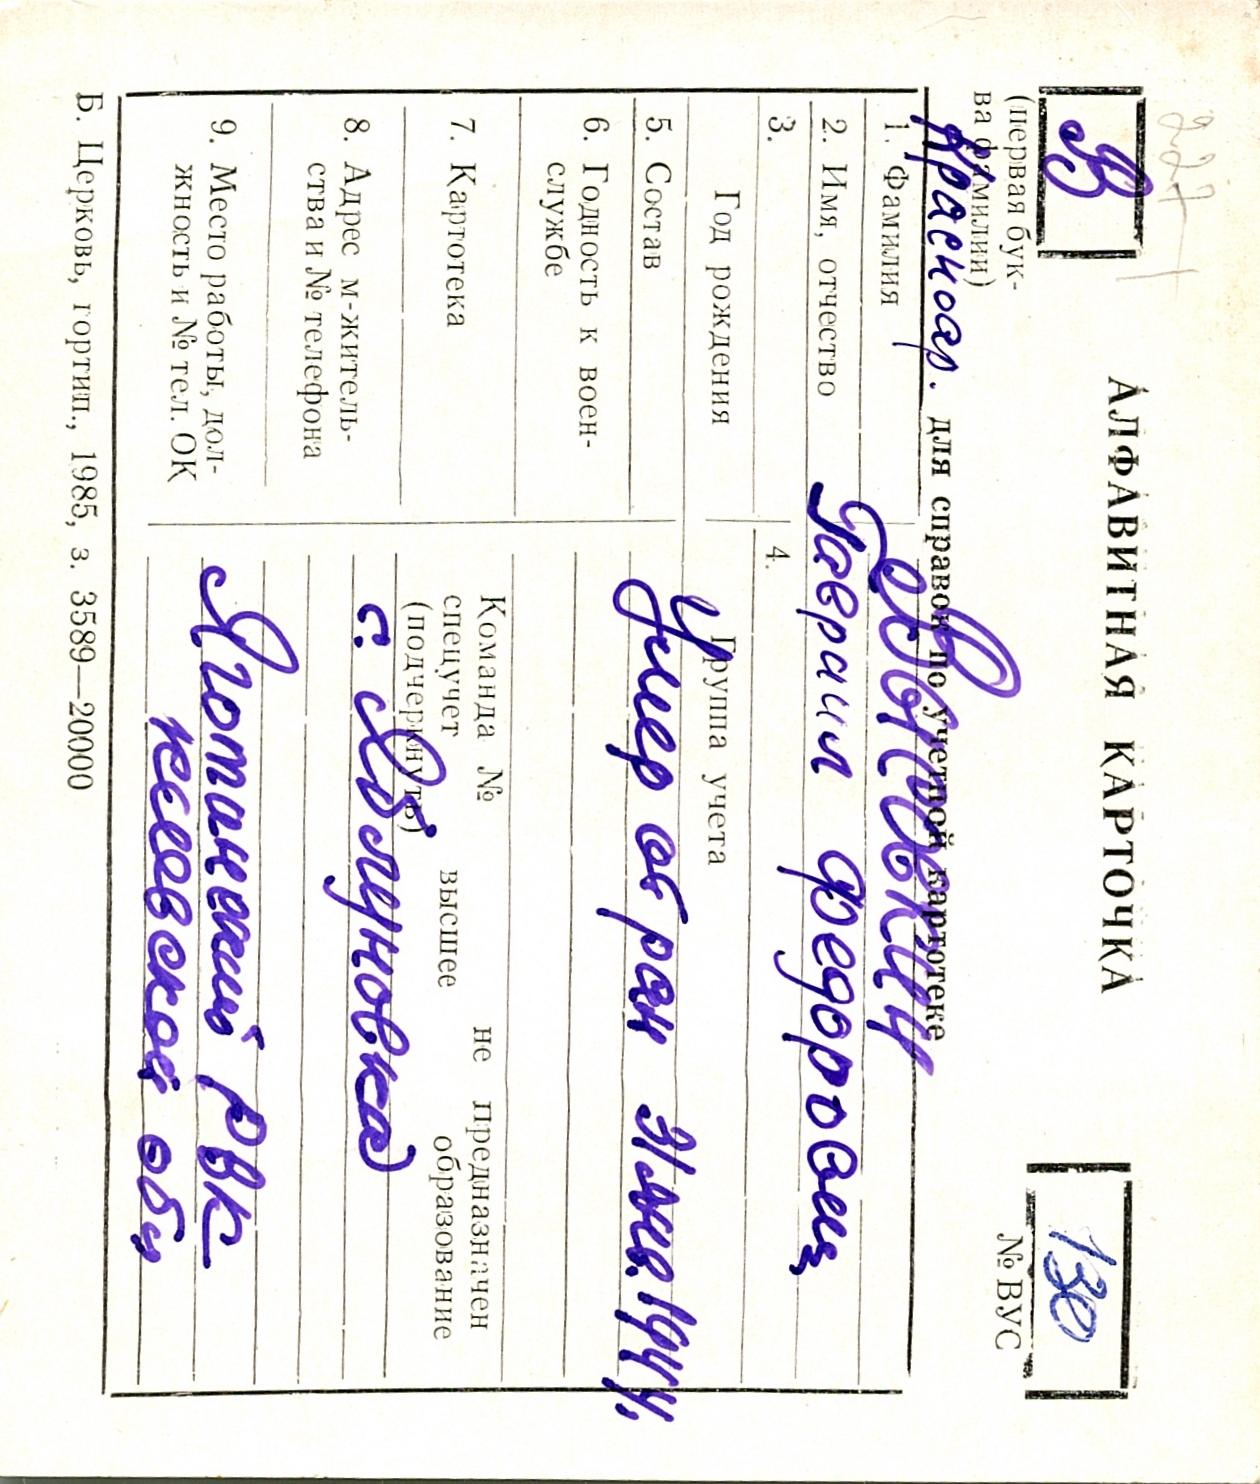 227-1
В
АЛФАВИТНАЯ КАРТОЧКА
130
(первая бук-
ва фамилии)
№ ВУС
Красноар. для справок по учетной картотеке
1. Фамилия
2. Имя, отчество Гавриил Федорович
3.
4.
Год рождения
Группа учета
5. Состав Умер от ран 1944.
6. Годность к воен-
службе
7. Картотека
Команда № не предназначен
спецучет высшее образование
(подчеркнуть)
8. Адрес м-житель-
ства и № телефона
с.
9. Место работы, дол-
жность и № тел. ОК
Яготинский РВК
Киевской обл
Б. Церковь, гортип., 1985, з. 3589—20000